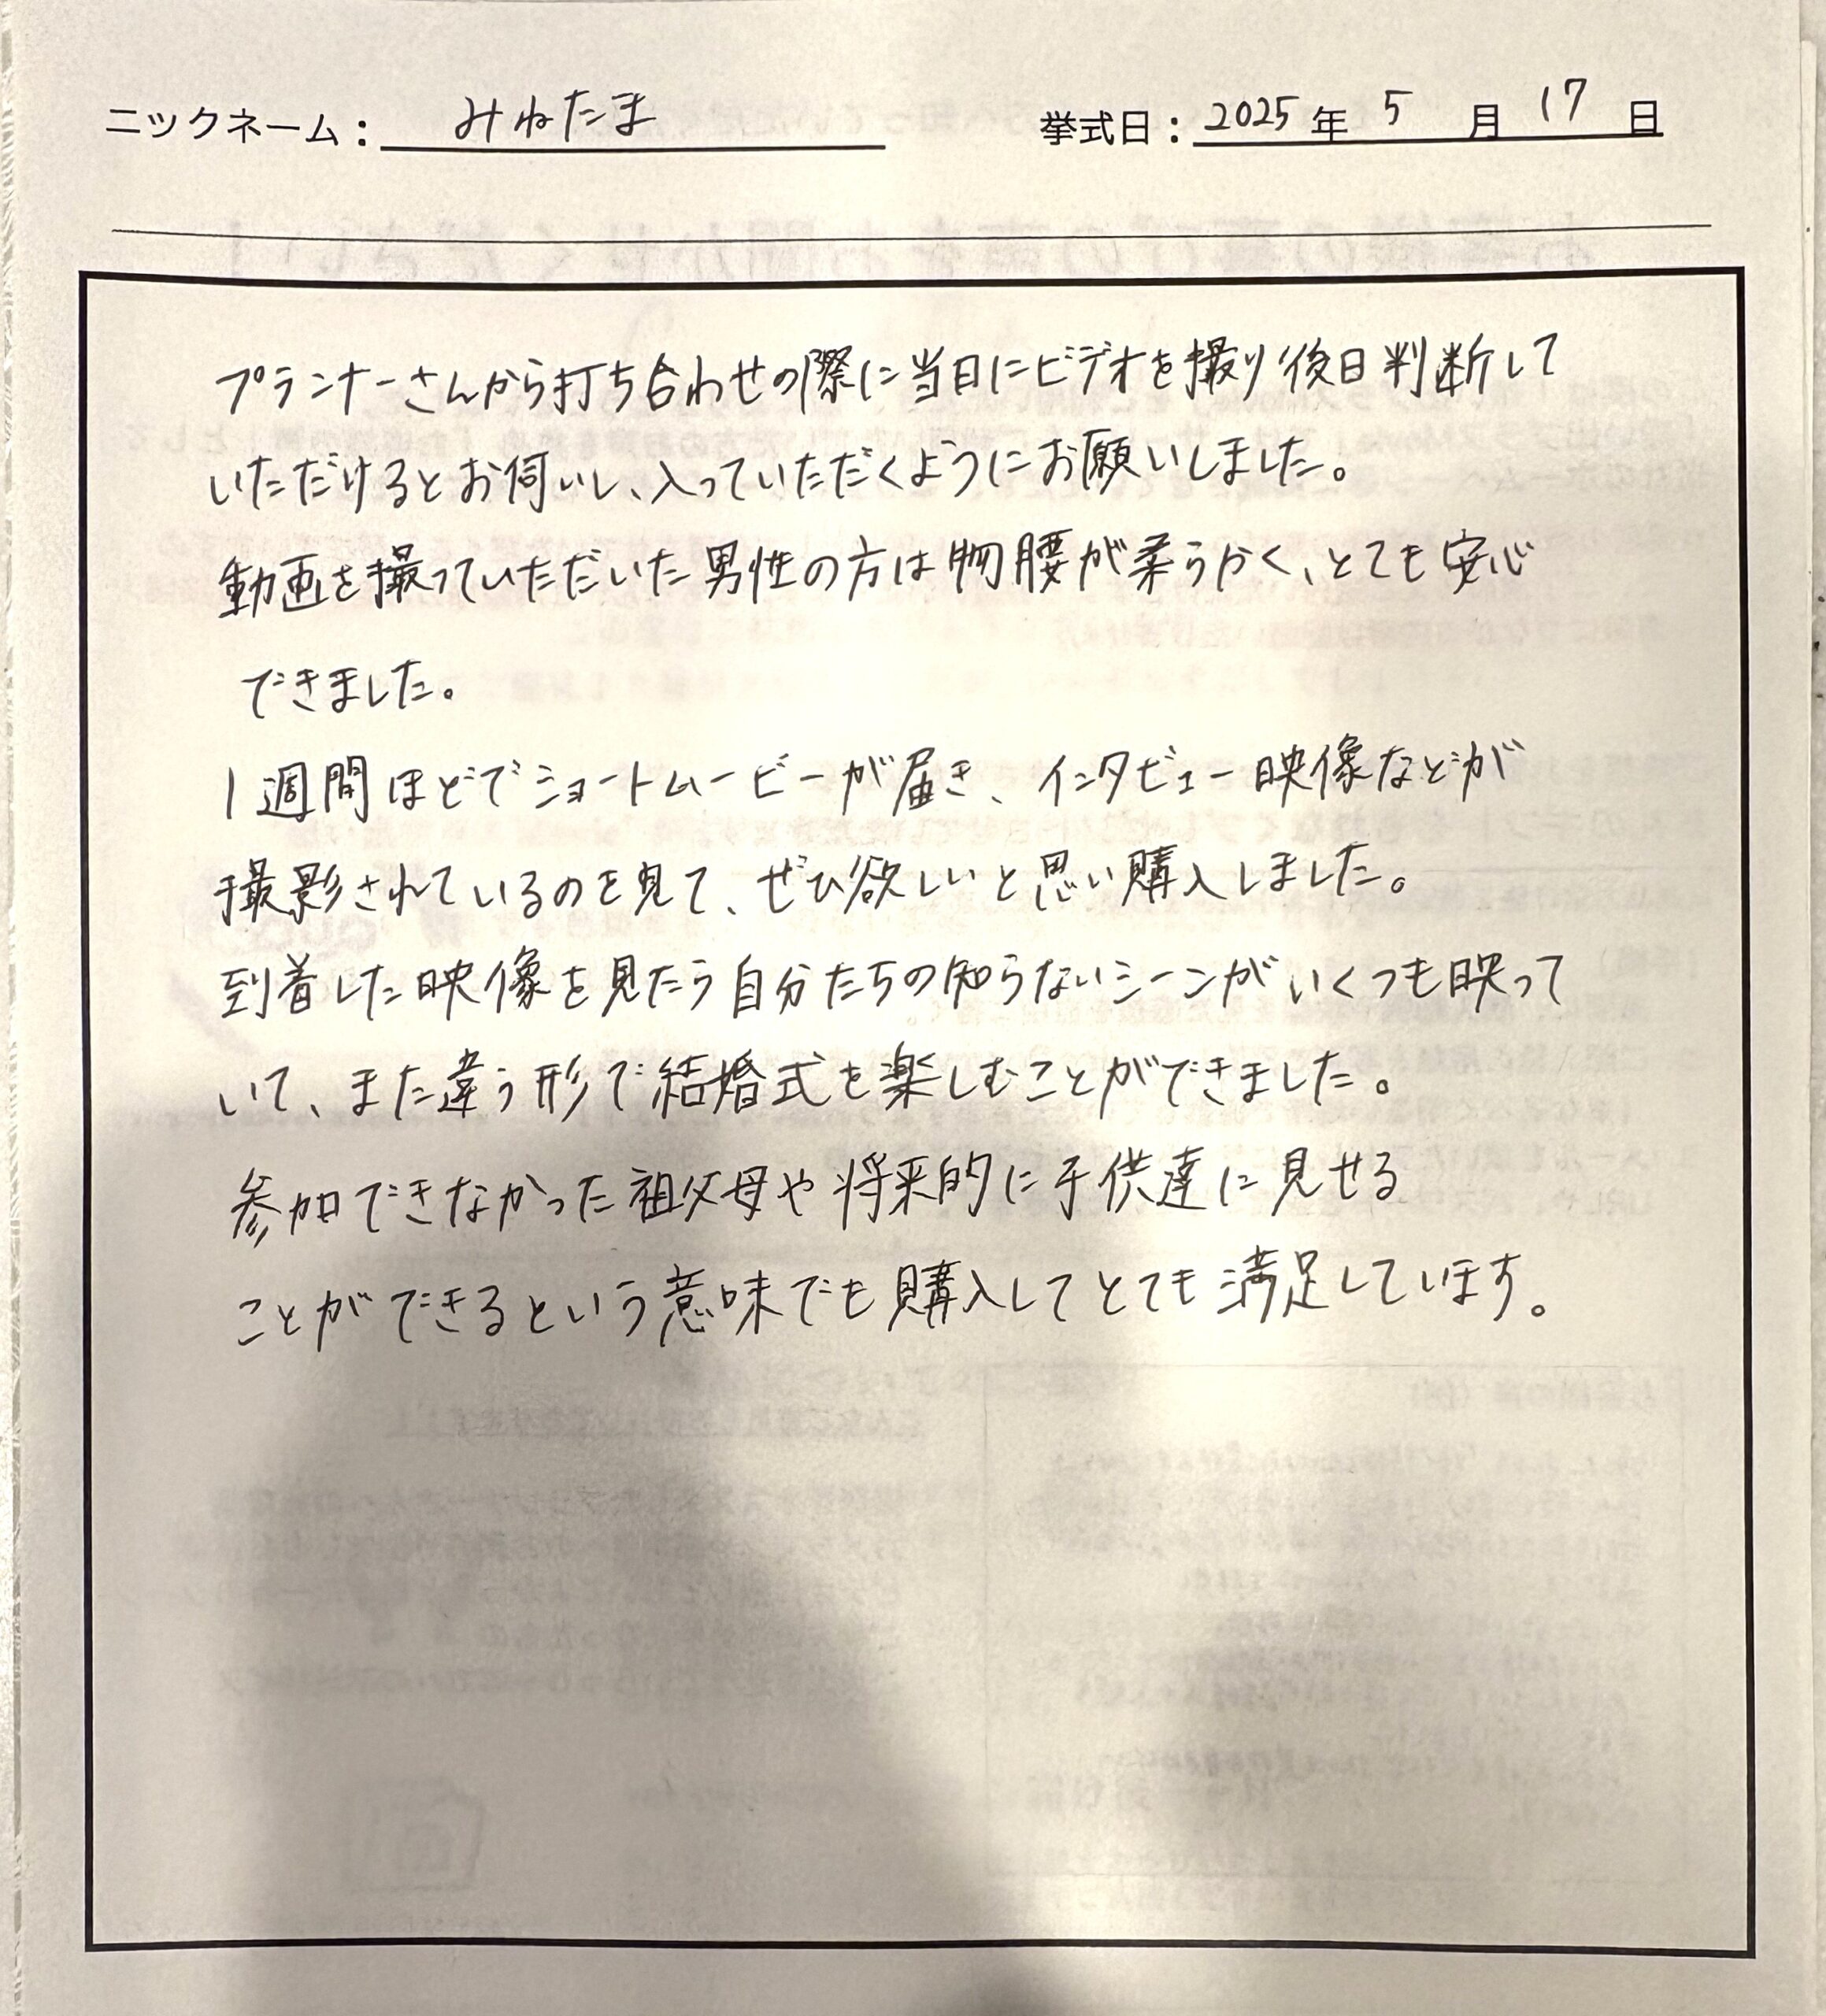 ニックネーム：みねたま 挙式日：2025年5月17日
プランナーさんから打ち合わせの際に当日にビデオを撮り後日判断して
いただけるとお伺いし、入っていただくようにお願いしました。
動画を撮っていただいた男性の方は物腰が柔らかく、とても安心
できました。
1週間ほどでショートムービーが届き、インタビュー映像などが
撮影されているのを見て、ぜひ欲しいと思い購入しました。
到着した映像を見たら自分たちの知らないシーンがいくつも映って
いて、また違う形で結婚式を楽しむことができました。
参加できなかった祖父母や将来的に子供達に見せる
ことができるという意味でも購入してとても満足しています。